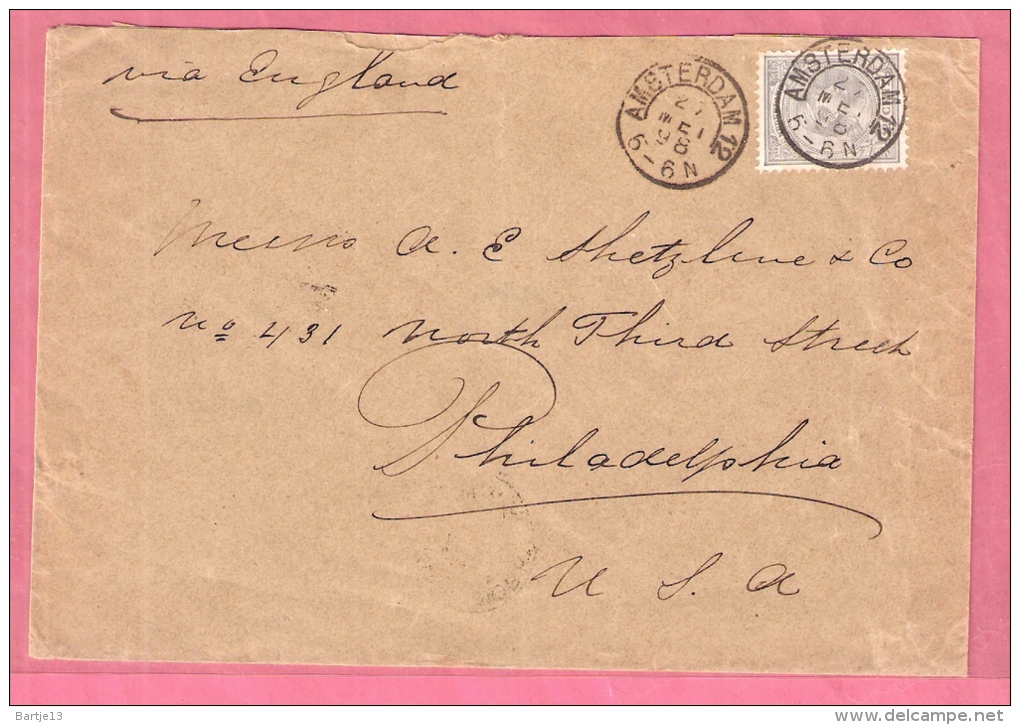 via England
AMSTERDAM 12
5-6N
AMSTERDAM 12
5-6N
Messrs A. E Shetzline & Co
No 431 North Third Street
Philadelphia
U. S. A
Bartje13
www.delcampe.net